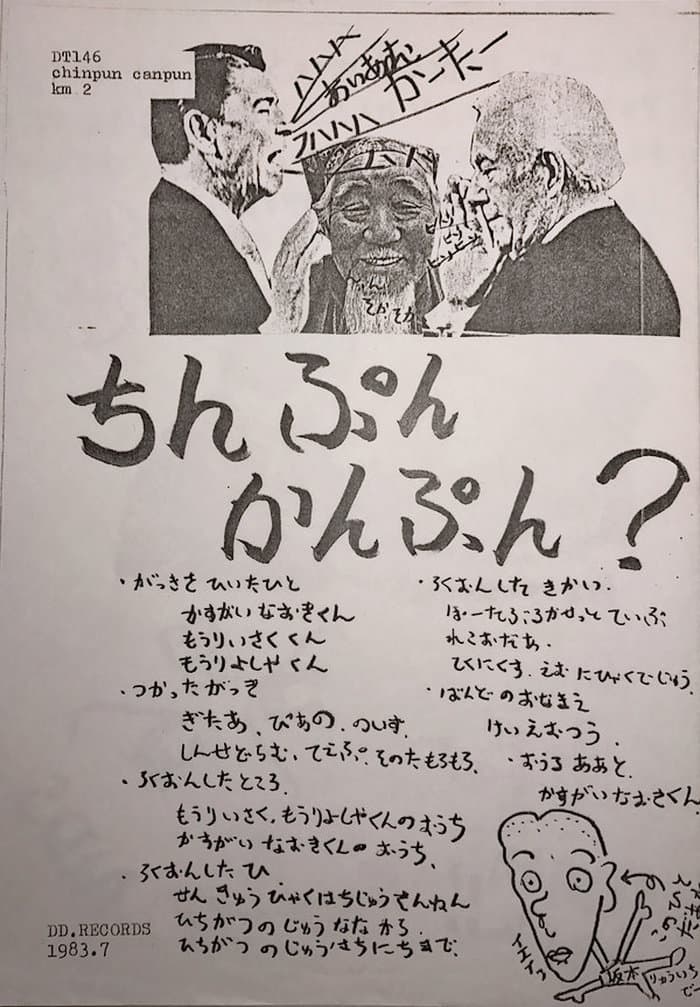 DT146
chinpun canpun
km 2
ハハハハ
あいあむ
かーたー
フハハハハ
そか、そか
ちんぷん
かんぷん?
・がっきを ひいたひと
かすがい なおきくん
もうりいさく くん
もうりよしや くん
・つかった がっき
ぎたあ、ぴあの、のいず、
しんせどらむ、てえぷ、そのたもろもろ、
・ろくおんしたところ、
もうりいさく、もうりよしやくんの おうち
かすがい なおきくんの おうち、
・ろくおんした ひ、
せん きゅうひゃくはちじゅうさんねん
ひちがつの じゅう なな から、
ひちがつ の じゅう
にちまで、
・ろくおんした きかい、
ぽーたぶるかせっと ていぷ
れこおだあ、
てくにくす、えむ にひゃくでじゅう、
・ばんどの おなまえ
けいえむつう、
・おうる ああと、
かすがい なおきくん
坂本
りゅういち
DD.RECORDS
1983.7